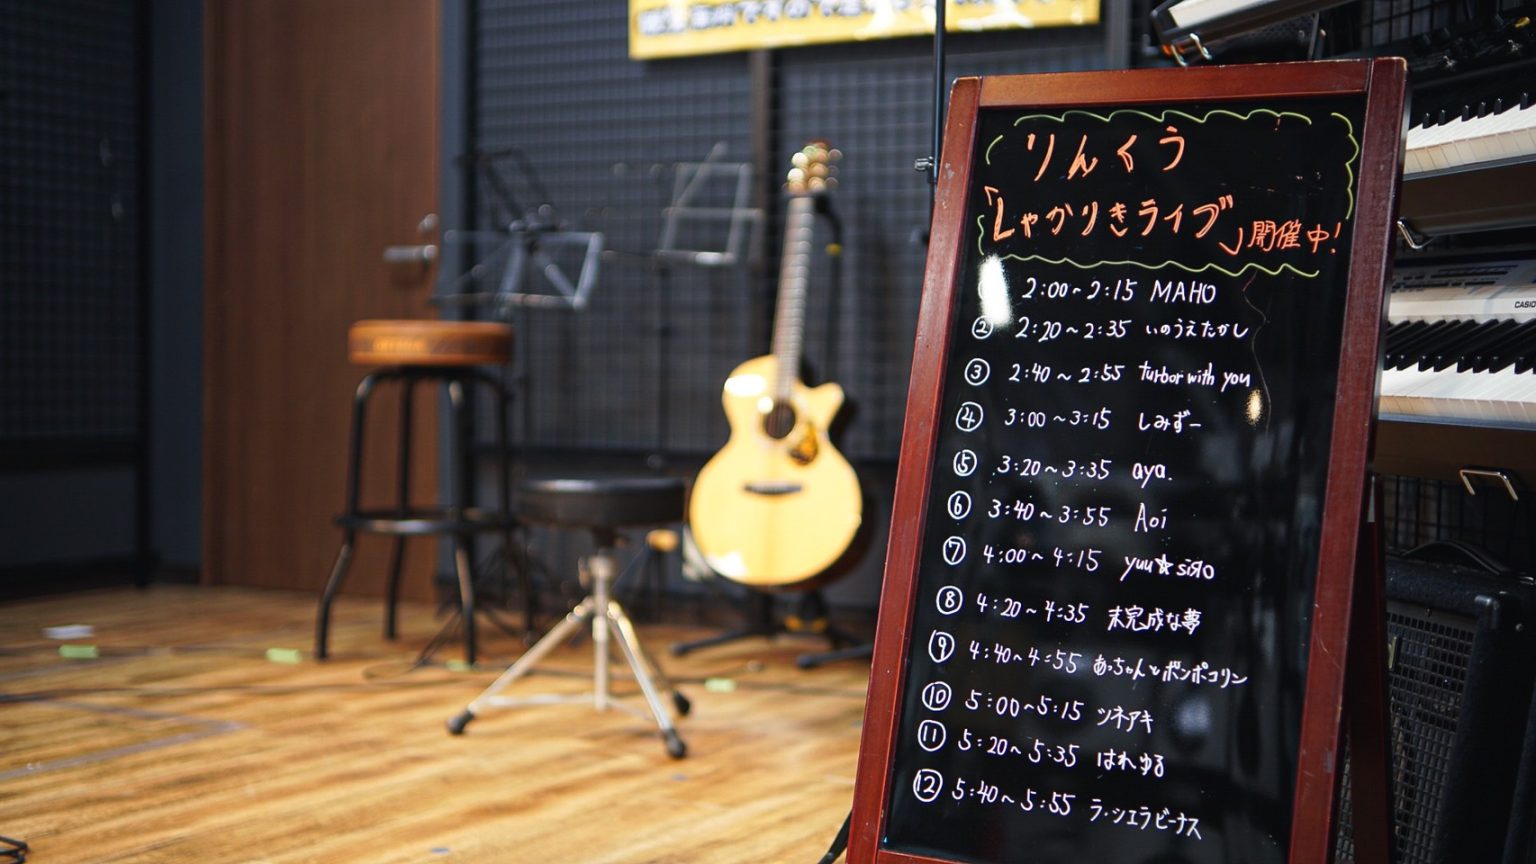 りんくう
「しゃかりきライブ」開催中!
2:00~2:15 MAHO
② 2:20~2:35 いのうえたかし
③ 2:40~2:55 turbor with you
④ 3:00~3:15 しみずー
⑤ 3:20~3:35 aya.
⑥ 3:40~3:55 Aoi
⑦ 4:00~4:15 yuu☆siЯo
⑧ 4:20~4:35 未完成な夢
⑨ 4:40~4:55 あっちゃんとポンポコリン
⑩ 5:00~5:15 ツネアキ
⑪ 5:20~5:35 はれゆる
⑫ 5:40~5:55 ラ・シエラビーナス
CASIO